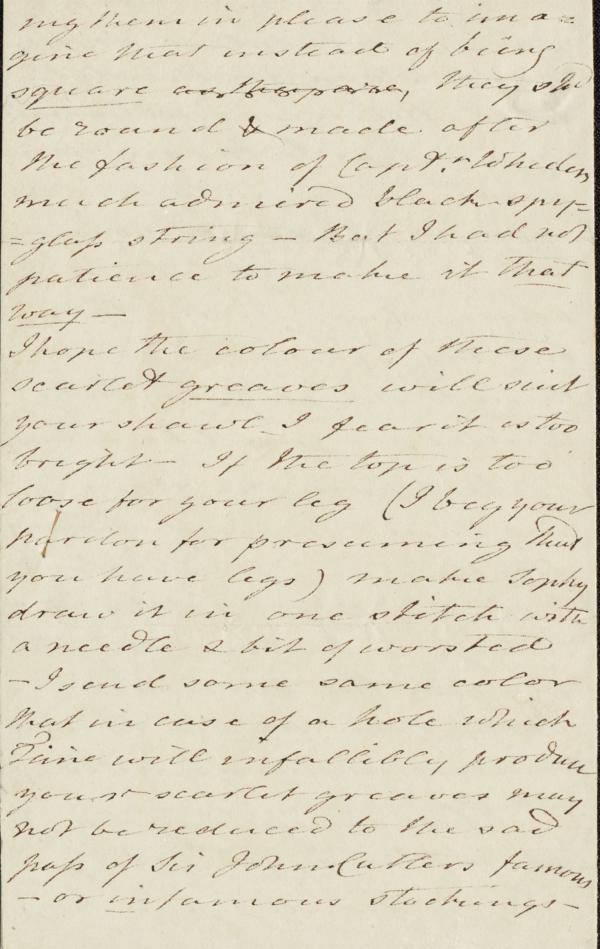 ing them in please to ima=
gine that instead of being
square they shd
be round & made after
the fashion of Captn. Whedens
much admired black spy=
=glass string – But I had not
patience to make it that
way –
I hope the colour of these
scarlet greaves will suit
your shawl – I fear it is too
bright – If the top is too
loose for your leg (I beg your
pardon for presuming that
you have legs) make Sophy
draw it in one stitch with
a needle & bit of worsted
– I send some same color
that in case of a hole which
Time will infallibly produce
your scarlet greaves may
not be reduced to the sad
pass of Sir John Cutlers famous
– or infamous stockings –